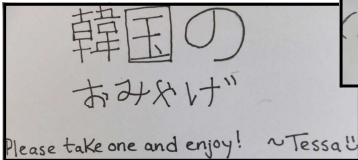 韓国の
おみやげ
Please take one and enjoy! ~Tessa